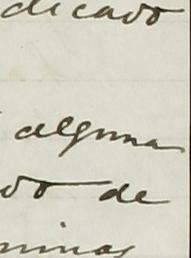 dicado
alguna
do de
minas